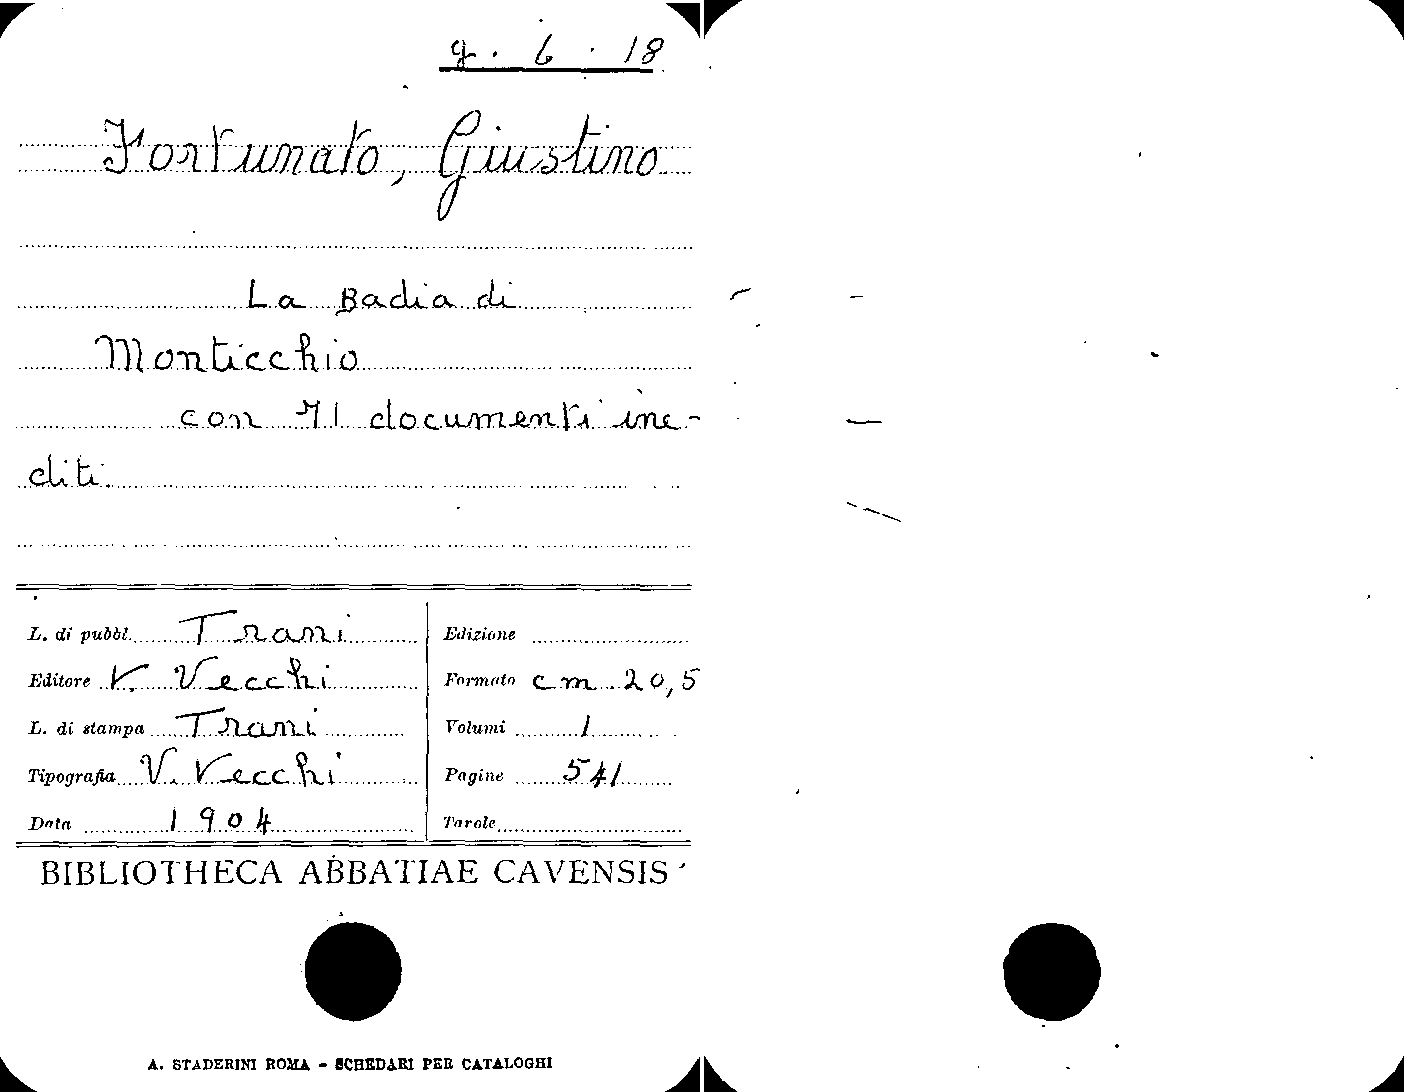 g. 6. 18
Fortunato, Giustino
La Badia di
Monticchio
con 71 documenti ine-
diti.
L. di pubbl. Trani
Editore V. Vecchi
L. di stampa Trani
Tipografia V. Vecchi
Data 1904
Edizione
Formato cm. 20,5
Volumi 1
Pagine 541
Tavole
BIBLIOTHECA ABBATIAE CAVENSIS
A. STADERINI ROMA - SCHEDARI PER CATALOGHI